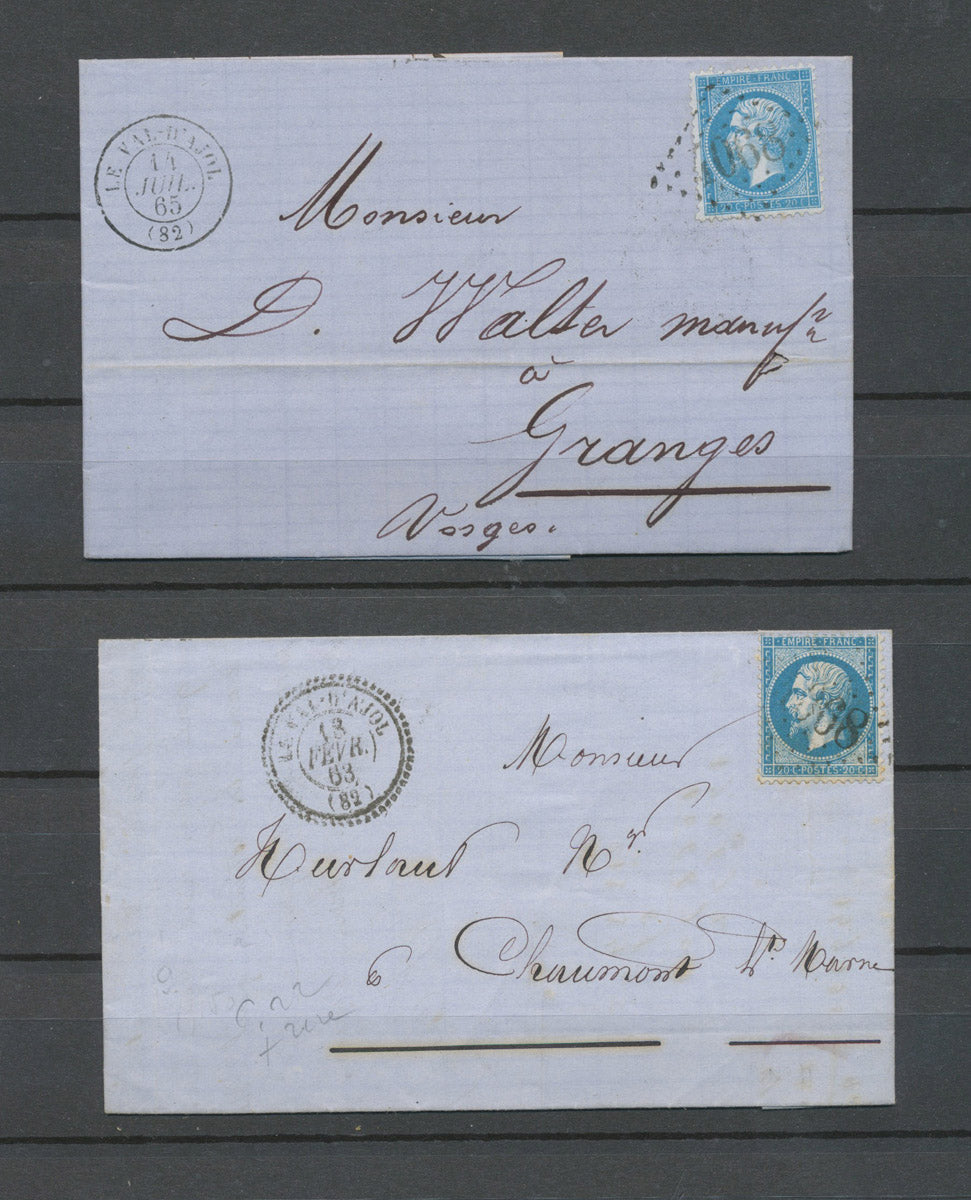 LE VAL-D'AJOL
14
JUIL.
65
(82)
EMPIRE·FRANC
20 C·POSTES·20 C
068
Monsieur
D. Walter manuf
à
Granges
Vosges.
LE VAL-D'AJOL
13
FEVR.
63
(82)
EMPIRE·FRANC
20 C·POSTES·20 C
068
Monsieur
Hurlaut
Chaumont Hte Marne
22
+ rare